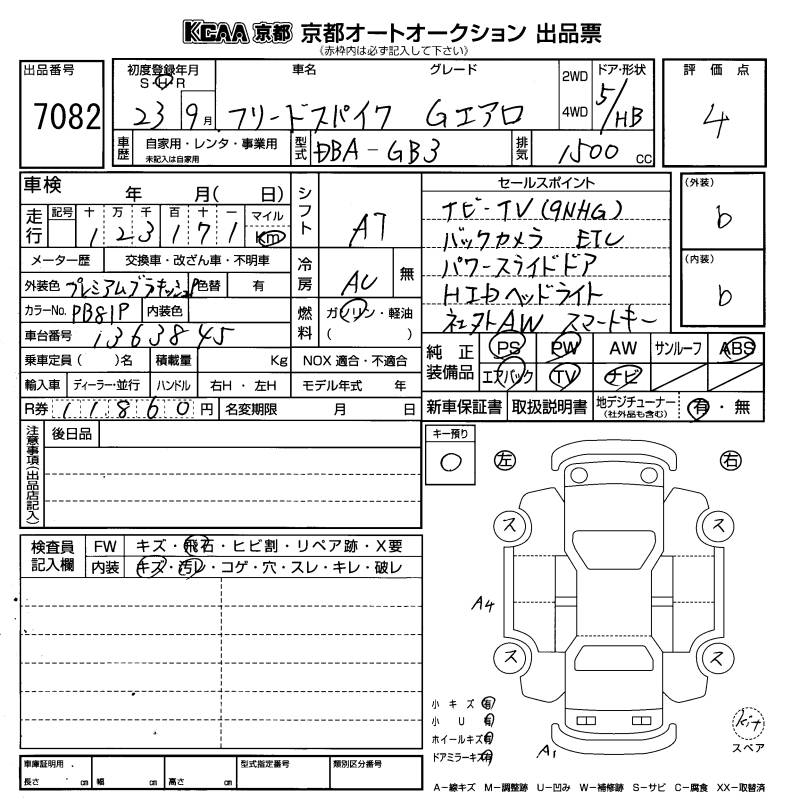 KCAA 京都 京都オートオークション 出品票
(赤枠内は必ず記入して下さい)
出品番号
7082
初度登録年月
S・H・R
23 9月
車名 グレード
フリードスパイク Gエアロ
2WD
4WD
ドア・形状
5/HB
評価点
4
車歴
自家用・レンタ・事業用
未記入は自家用
型式
DBA-GB3
排気
1500 cc
車検 年 月( 日)
走行
記号 十 万 千 百 十 一 マイル
1 2 3 1 7 1 km
メーター歴 交換車・改ざん車・不明車
外装色 プレミアムブラキッシュP 色替 有
カラーNo. PB81P 内装色
車台番号 1363845
乗車定員( )名 積載量 Kg
輸入車 ディーラー・並行 ハンドル 右H・左H
R券 11860円 名変期限 月 日
シフト
AT
冷房
AC 無
燃料
ガソリン・軽油
( )
NOX 適合・不適合
モデル年式 年
セールスポイント
ナビ-TV(9NHG)
バックカメラ ETC
パワースライドドア
HIDヘッドライト
社外AW スマートキー
(外装)
b
(内装)
b
純正装備品
PS PW AW サンルーフ ABS
エアバック TV ナビ
新車保証書 取扱説明書 地デジチューナー
(社外品も含む)
有・無
注意事項(出品店記入)
後日品
キー預り
○
左 右
ス ス
A4
ス ス
A1
検査員記入欄
FW キズ・飛石・ヒビ割・リペア跡・X要
内装 キズ・汚レ・コゲ・穴・スレ・キレ・破レ
小キズ 有
小U 有
ホイールキズ 有
ドアミラーキズ 有
kit
スペア
車庫証明用
長さ cm 幅 cm 高さ cm
型式指定番号
類別区分番号
A-線キズ M-調整跡 U-凹み W-補修跡 S-サビ C-腐食 XX-取替済